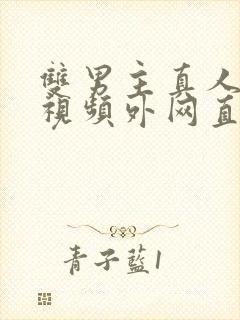 雙男主真人
視頻外网直
青子藍1